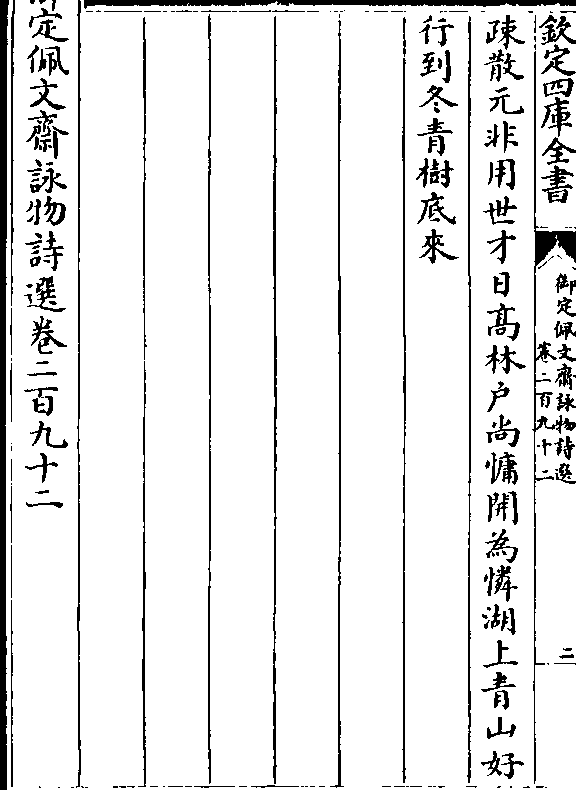 欽定四庫全書
御定佩文齋詠物詩選
卷二百九十二
二
疎散元非用世才日髙林户尚慵開為憐湖上青山好
行到冬青樹底來
定佩文齋詠物詩選卷二百九十二